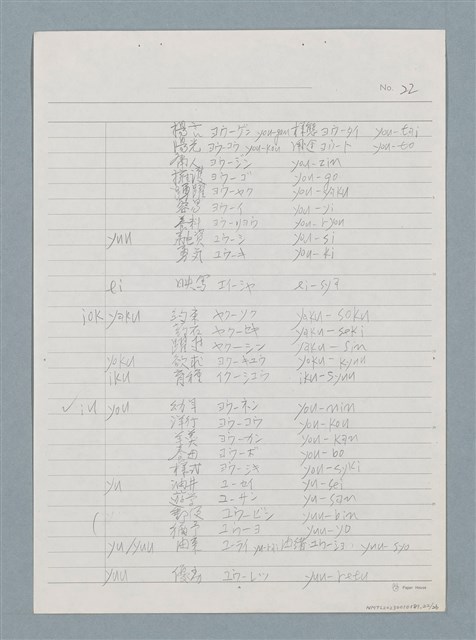 No. 22
揚言 ヨウーゲン you-gen 様態 ヨウータイ you-tai
陽光 ヨウーコウ you-kou ヨウート you-to
ヨウージン you-zin
擁護 ヨウーゴ you-go
ヨウーヤク you-yaku
容易 ヨウーイ you-yi
ヨウーリョウ you-ryou
yuu 融資 ユウーシ yuu-si
勇気 ユウーキ yuu-ki
ei 映写 エイーシャ ei-sya
iok yaku 約束 ヤクーソク yaku-soku
ヤクーセキ yaku-seki
躍進 ヤクーシン yaku-sin
yoku 欲求 ヨーキュウ yoku-kyuu
iku 育種 イクーシュウ iku-syuu
✓ iu you 幼年 ヨウーネン you-nin
洋行 ヨウーコウ you-kou
ヨウーカン you-kan
ヨウーボ you-bo
様式 ヨウーシキ you-syki
yu 油井 ユーセイ yu-sei
ユーサン yu-san
郵便 ユウービン yuu-bin
( 猶予 ユウーヨ yuu-yo
yu/yuu 由来 ユーライ yu-rai 由緒 ユウーショ yuu-syo
yuu 優劣 ユウーレツ yuu-retu
Paper House